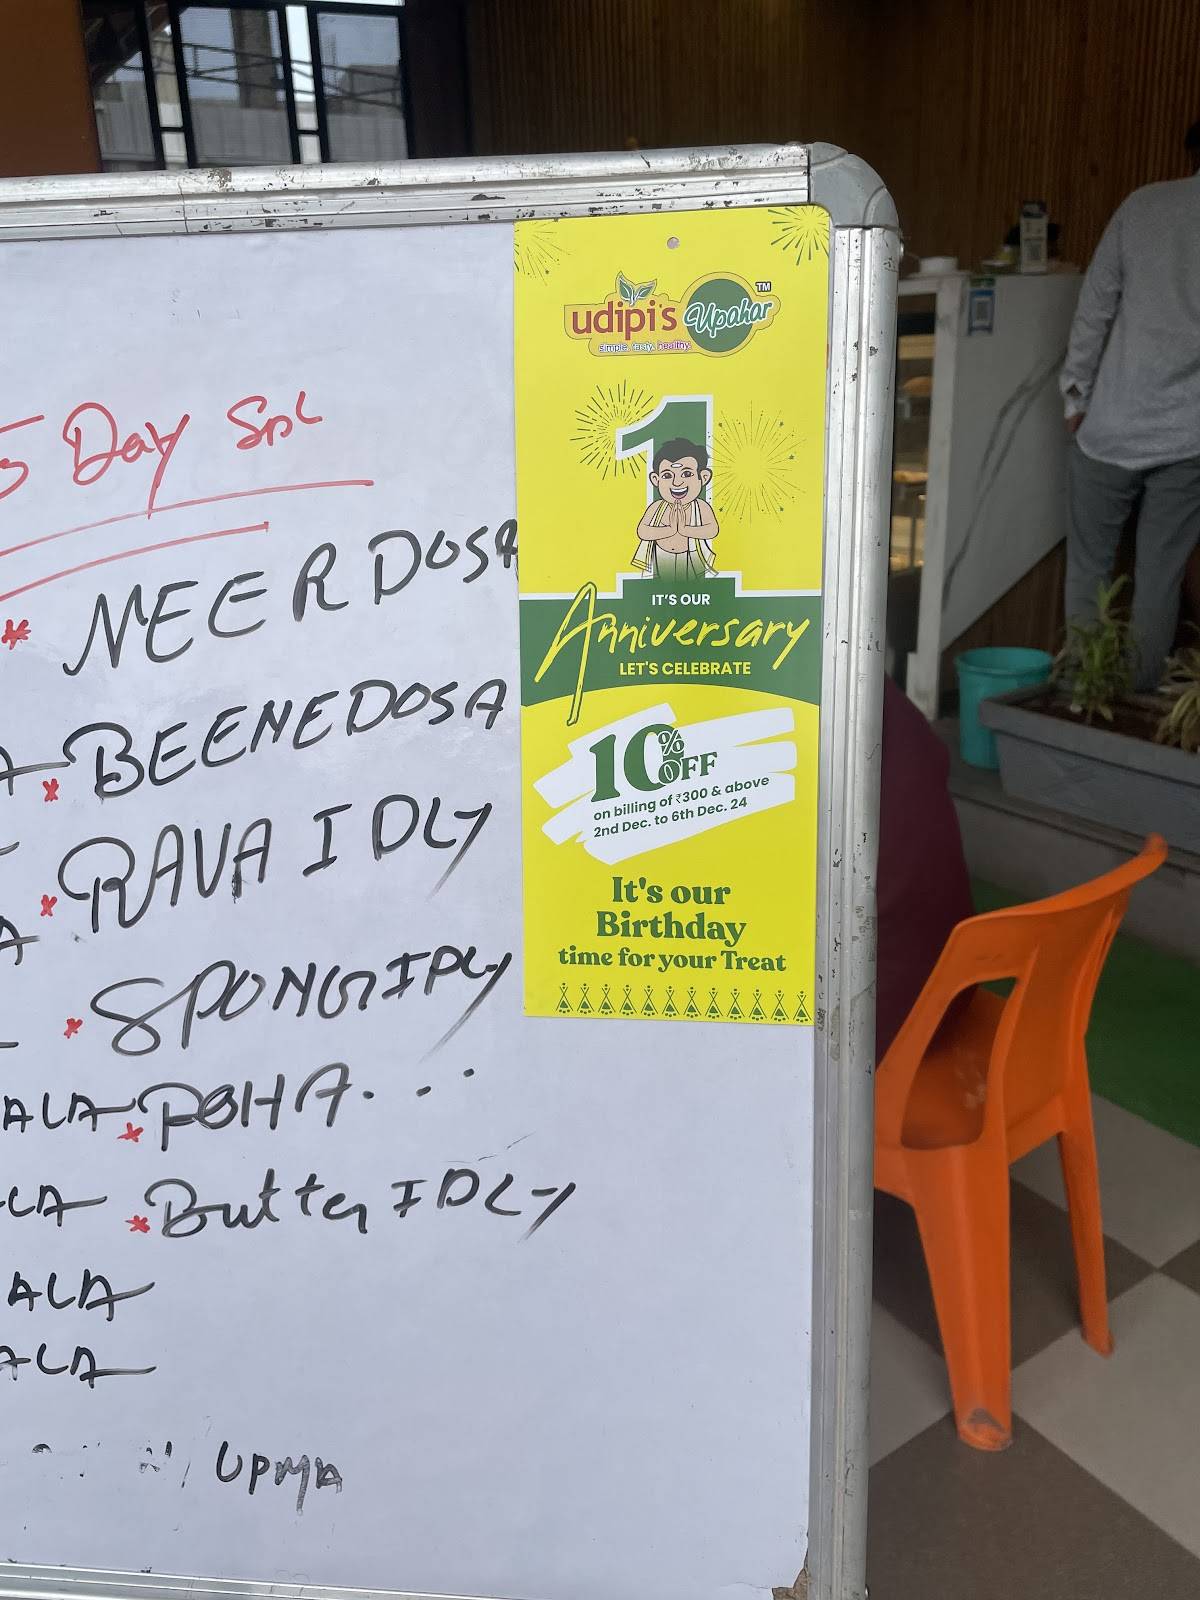 5 Day Spl
* NEER DOSA
A * BEENEDOSA
* RAVA IDLY
A
* SPONGIDLY
ALA * POHA...
LA * Butter IDLY
ALA
ALA
UPMA
udipi's Upahar TM
simple. tasty. healthy.
1
IT'S OUR
Anniversary
LET'S CELEBRATE
10% OFF
on billing of ₹300 & above
2nd Dec. to 6th Dec. 24
It's our
Birthday
time for your Treat